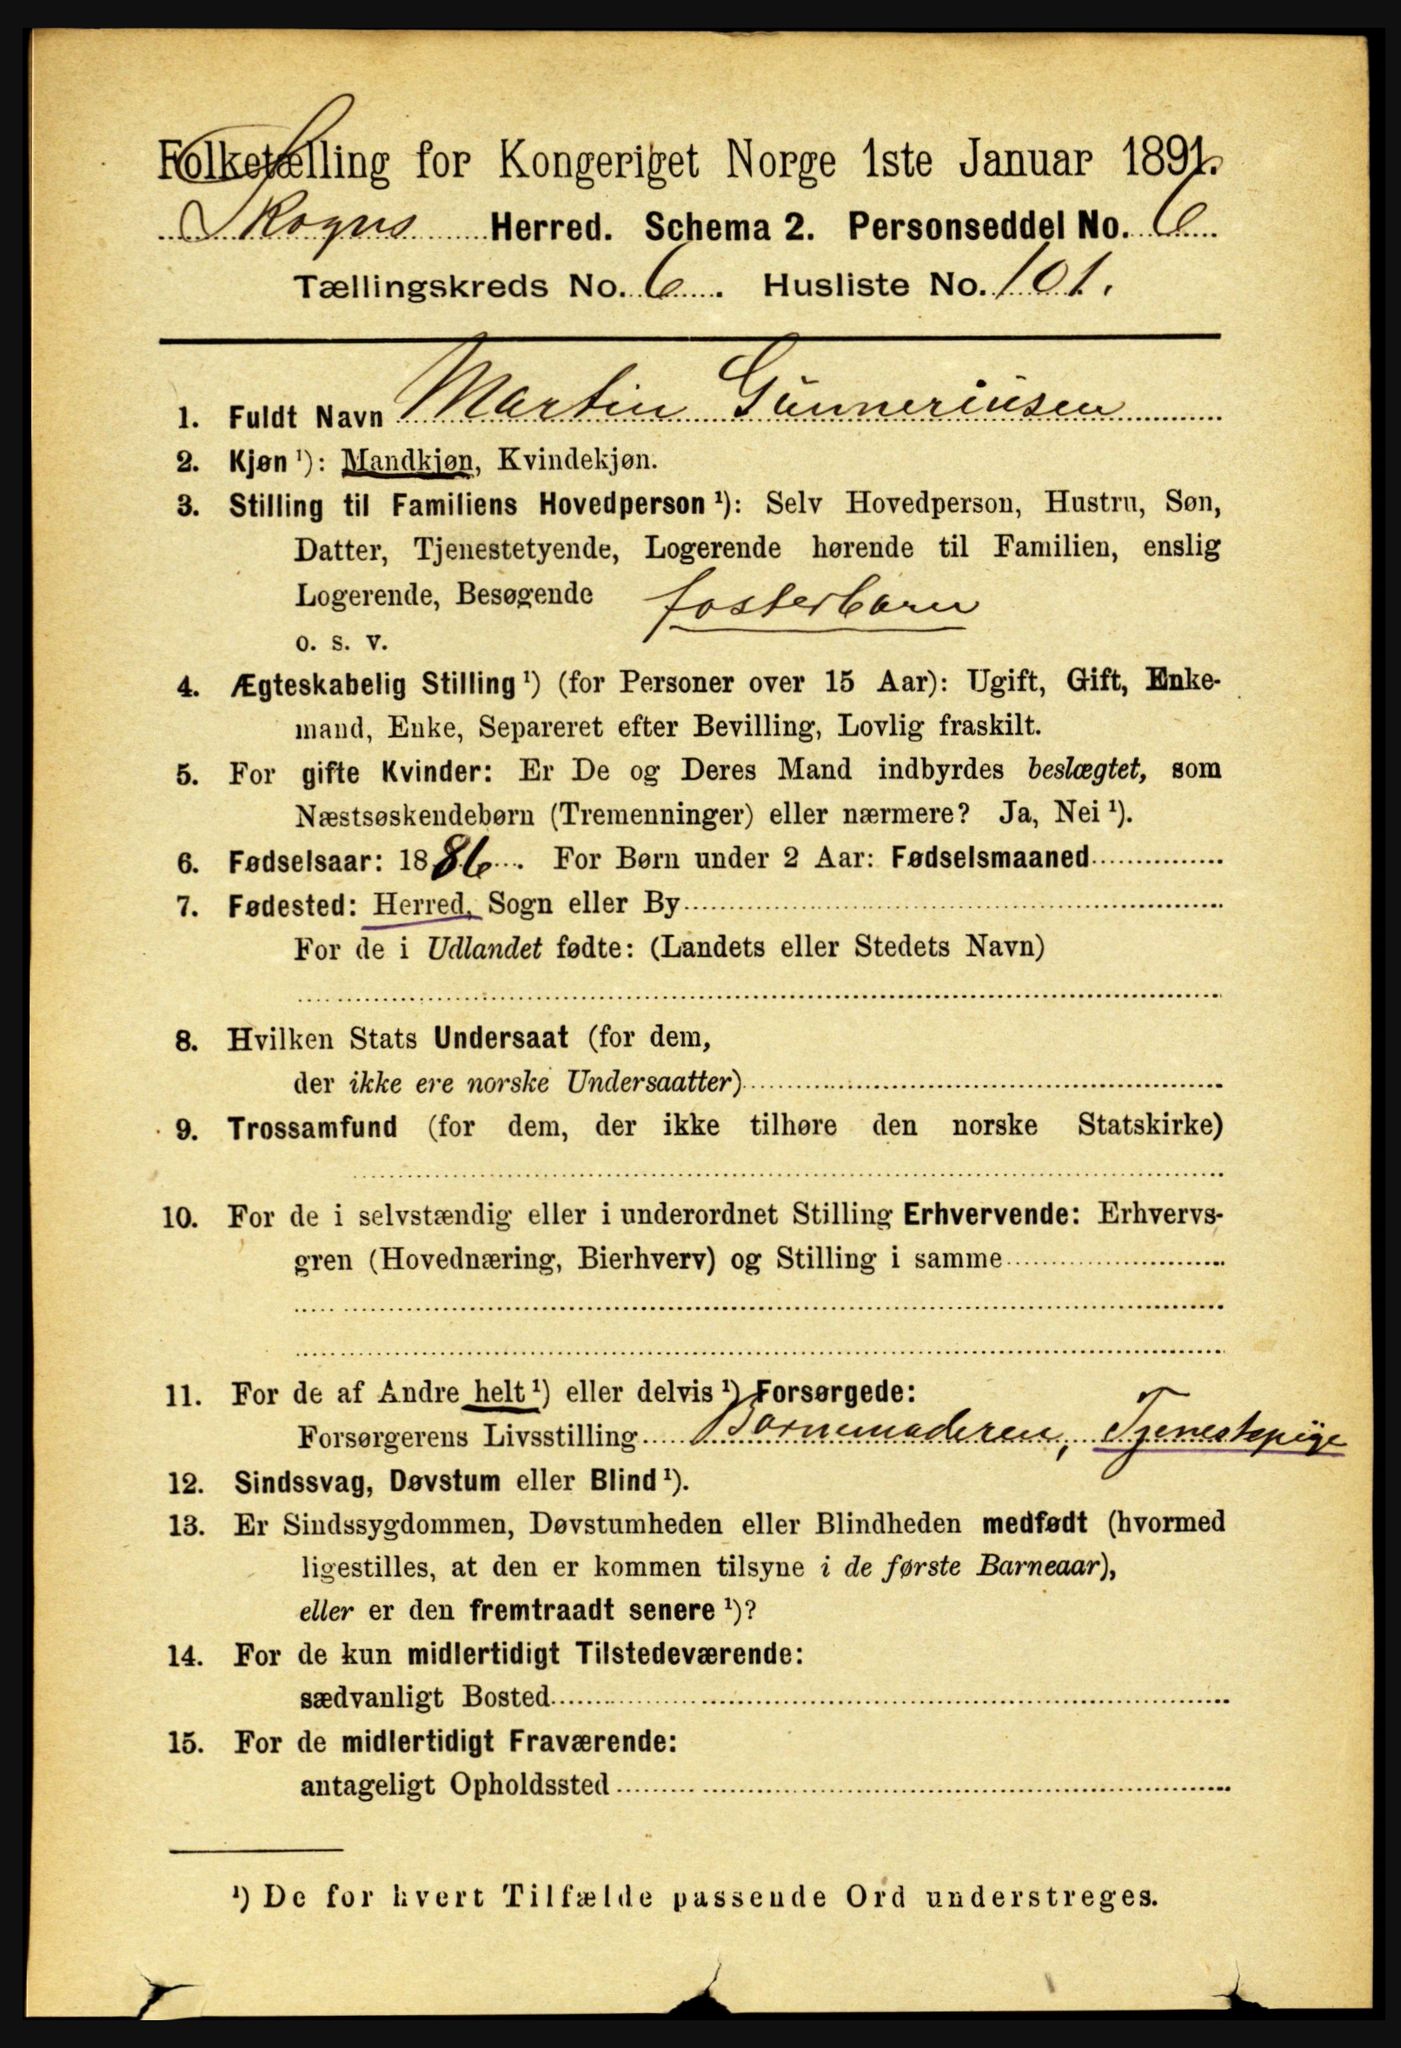 Folketælling for Kongeriget Norge 1ste Januar 1891.
Skogns Herred. Schema 2. Personseddel No. 6
Tællingskreds No. 6. Husliste No. 101.
1. Fuldt Navn Martin Gunneriusen
2. Kjøn¹): Mandkjøn, Kvindekjøn.
3. Stilling til Familiens Hovedperson¹): Selv Hovedperson, Hustru, Søn,
Datter, Tjenestetyende, Logerende hørende til Familien, enslig
Logerende, Besøgende fosterbarn
o. s. v.
4. Ægteskabelig Stilling¹) (for Personer over 15 Aar): Ugift, Gift, Enke-
mand, Enke, Separeret efter Bevilling, Lovlig fraskilt.
5. For gifte Kvinder: Er De og Deres Mand indbyrdes beslægtet, som
Næstsøskendebørn (Tremenninger) eller nærmere? Ja, Nei¹).
6. Fødselsaar: 1886. For Børn under 2 Aar: Fødselsmaaned
7. Fødested: Herred, Sogn eller By
For de i Udlandet fødte: (Landets eller Stedets Navn)
8. Hvilken Stats Undersaat (for dem,
der ikke ere norske Undersaatter)
9. Trossamfund (for dem, der ikke tilhøre den norske Statskirke)
10. For de i selvstændig eller i underordnet Stilling Erhvervende: Erhvervs-
gren (Hovednæring, Bierhverv) og Stilling i samme
11. For de af Andre helt¹) eller delvis¹) Forsørgede:
Forsørgerens Livsstilling Barnemoderen, Tjenestepige
12. Sindssvag, Døvstum eller Blind¹).
13. Er Sindssygdommen, Døvstumheden eller Blindheden medfødt (hvormed
ligestilles, at den er kommen tilsyne i de første Barneaar),
eller er den fremtraadt senere¹)?
14. For de kun midlertidigt Tilstedeværende:
sædvanligt Bosted
15. For de midlertidigt Fraværende:
antageligt Opholdssted
¹) De for hvert Tilfælde passende Ord understreges.